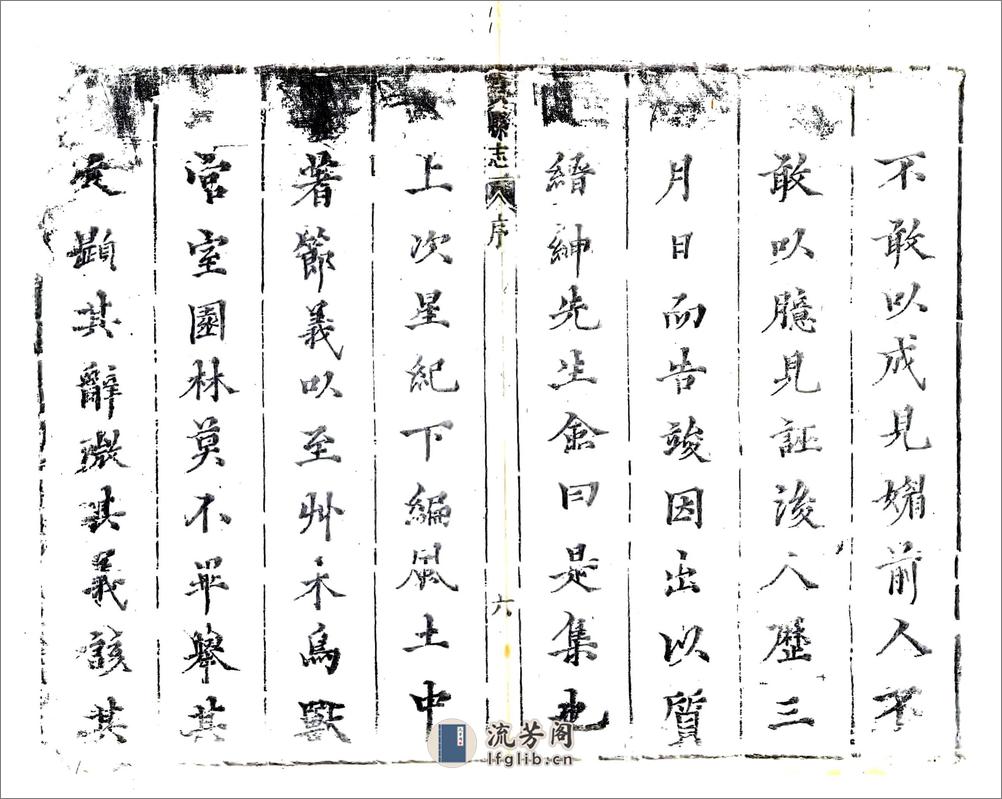 不敢以成見媚前人不
敢以臆見誣後人歷三
月日而告竣因出以質
縉紳先生僉曰是集也
縣志 序
六
上次星紀下編風土中
著節義以至艸木鳥獸
宮室園林莫不畢舉其
文顯其辭微其義該其
流芳阁
lfglib.cn